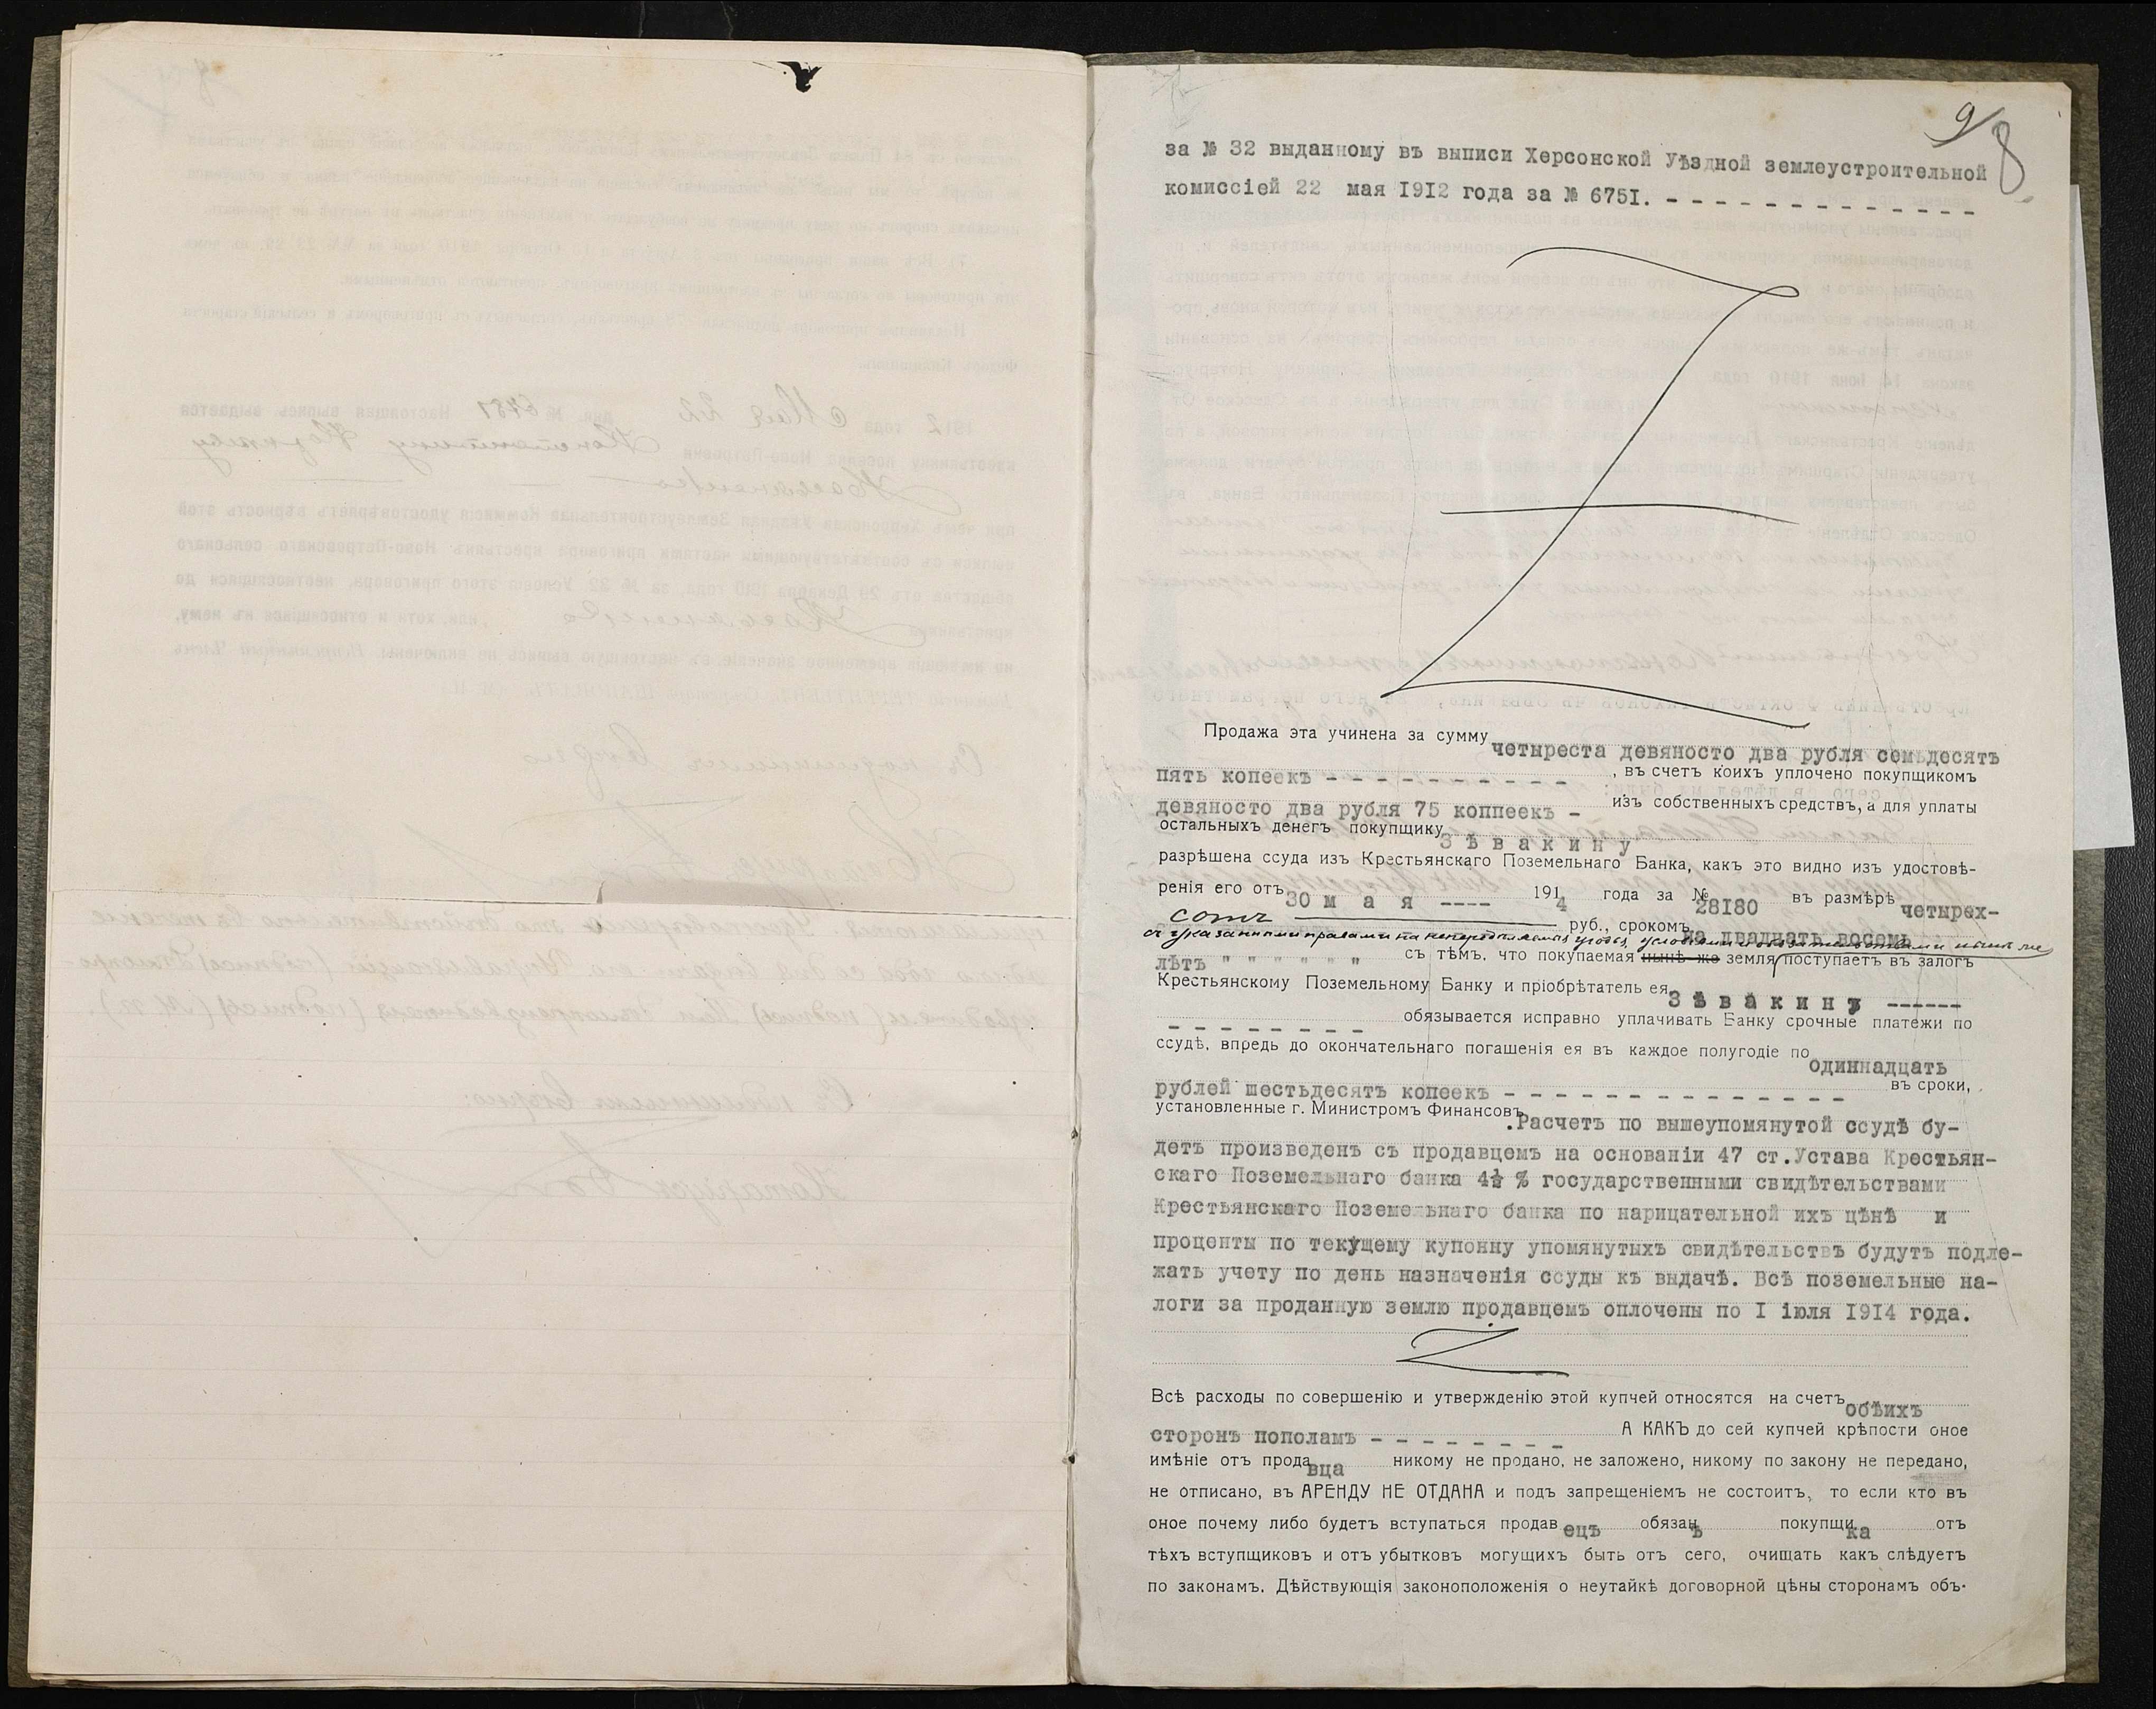 9
8
за № 32 выданному въ выписи Херсонской Уѣздной землеустроительной
комиссіей 22 мая I9I2 года за № 675I. - - - - - - - - - - - - - -
Продажа эта учинена за сумму четыреста девяносто два рубля семьдесятъ
пять копеекъ - - - - - - - - - - , въ счетъ коихъ уплочено покупщикомъ
девяносто два рубля 75 коппеекъ - изъ собственныхъ средствъ, а для уплаты
остальныхъ денегъ покупщику Зѣвакину
разрѣшена ссуда изъ Крестьянскаго Поземельнаго Банка, какъ это видно изъ удостовѣ-
ренія его отъ 30 мая ---- 1914 года за № 28I80 въ размѣрѣ четырех-
сотъ руб., срокомъ на двадцать восемь
съ указанными правами на непередѣляемыя угодья, условіями и обязательствами нынѣ же
лѣтъ " " " " " " съ тѣмъ, что покупаемая нынѣ же земля поступаетъ въ залогъ
Крестьянскому Поземельному Банку и пріобрѣтатель ея Зѣвакинъ ------
- - - - - - - - обязывается исправно уплачивать Банку срочные платежи по
ссудѣ, впредь до окончательнаго погашенія ея въ каждое полугодіе по одиннадцать
рублей шестьдесятъ копеекъ - - - - - - - - - - - - - - въ сроки,
установленные г. Министромъ Финансовъ .Расчетъ по вышеупомянутой ссудѣ бу-
детъ произведенъ съ продавцемъ на основаніи 47 ст.Устава Крестьян-
скаго Поземельнаго банка 4½ % государственными свидѣтельствами
Крестьянскаго Поземельнаго банка по нарицательной ихъ цѣнѣ и
проценты по текущему купонну упомянутыхъ свидѣтельствъ будутъ подле-
жать учету по день назначенія ссуды къ выдачѣ. Всѣ поземельные на-
логи за проданную землю продавцемъ оплочены по I іюля I9I4 года.
Всѣ расходы по совершенію и утвержденію этой купчей относятся на счетъ обѣихъ
сторонъ пополамъ - - - - - - - - А КАКЪ до сей купчей крѣпости оное
имѣніе отъ продавца никому не продано, не заложено, никому по закону не передано,
не отписано, въ АРЕНДУ НЕ ОТДАНА и подъ запрещеніемъ не состоитъ, то если кто въ
оное почему либо будетъ вступаться продавецъ обязанъ покупщика отъ
тѣхъ вступщиковъ и отъ убытковъ могущихъ быть отъ сего, очищать какъ слѣдуетъ
по законамъ. Дѣйствующія законоположенія о неутайкѣ договорной цѣны сторонамъ объ-